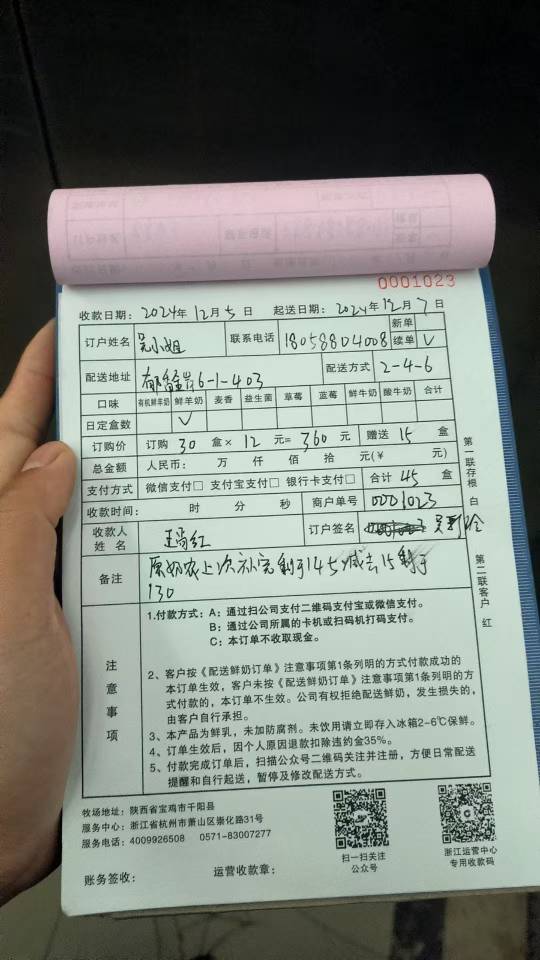 0001023
收款日期: 2024年 12月 5日 起送日期: 2024年 12月 7日
订户姓名 吴小姐 联系电话 18058804008 新单
续单 √
配送地址 6-1-403 配送方式 2-4-6
口味 有机鲜羊奶 鲜羊奶 麦香 益生菌 草莓 蓝莓 鲜牛奶 酸牛奶 合计
日定盒数 √
订购价 订购 30 盒× 12 元= 360 元 赠送 15 盒
总金额 人民币: 万 仟 佰 拾 元(¥ 元)
支付方式 微信支付□ 支付宝支付□ 银行卡支付□ 合计 45 盒
收款时间: 时 分 秒 商户单号 0001023
收款人
姓名 订户签名
备注 原 上次 剩于145减去15剩于
130
第一联存根 白
第二联客户 红
注意事项
1.付款方式: A: 通过扫公司支付二维码支付宝或微信支付。
B: 通过公司所属的卡机或扫码机打码支付。
C: 本订单不收取现金。
2、客户按《配送鲜奶订单》注意事项第1条列明的方式付款成功的
本订单生效，客户未按《配送鲜奶订单》注意事项第1条列明的方
式付款的，本订单不生效。公司有权拒绝配送鲜奶，发生损失的，
由客户自行承担。
3、本产品为鲜乳，未加防腐剂。未饮用请立即存入冰箱2-6℃保鲜。
4、订单生效后，因个人原因退款扣除违约金35%。
5、付款完成订单后，扫描公众号二维码关注并注册，方便日常配送
提醒和自行起送，暂停及修改配送方式。
牧场地址: 陕西省宝鸡市千阳县
服务中心: 浙江省杭州市萧山区崇化路31号
服务电话: 4009926508 0571-83007277
扫一扫关注
公众号
浙江运营中心
专用收款码
账务签收: 运营收款章: